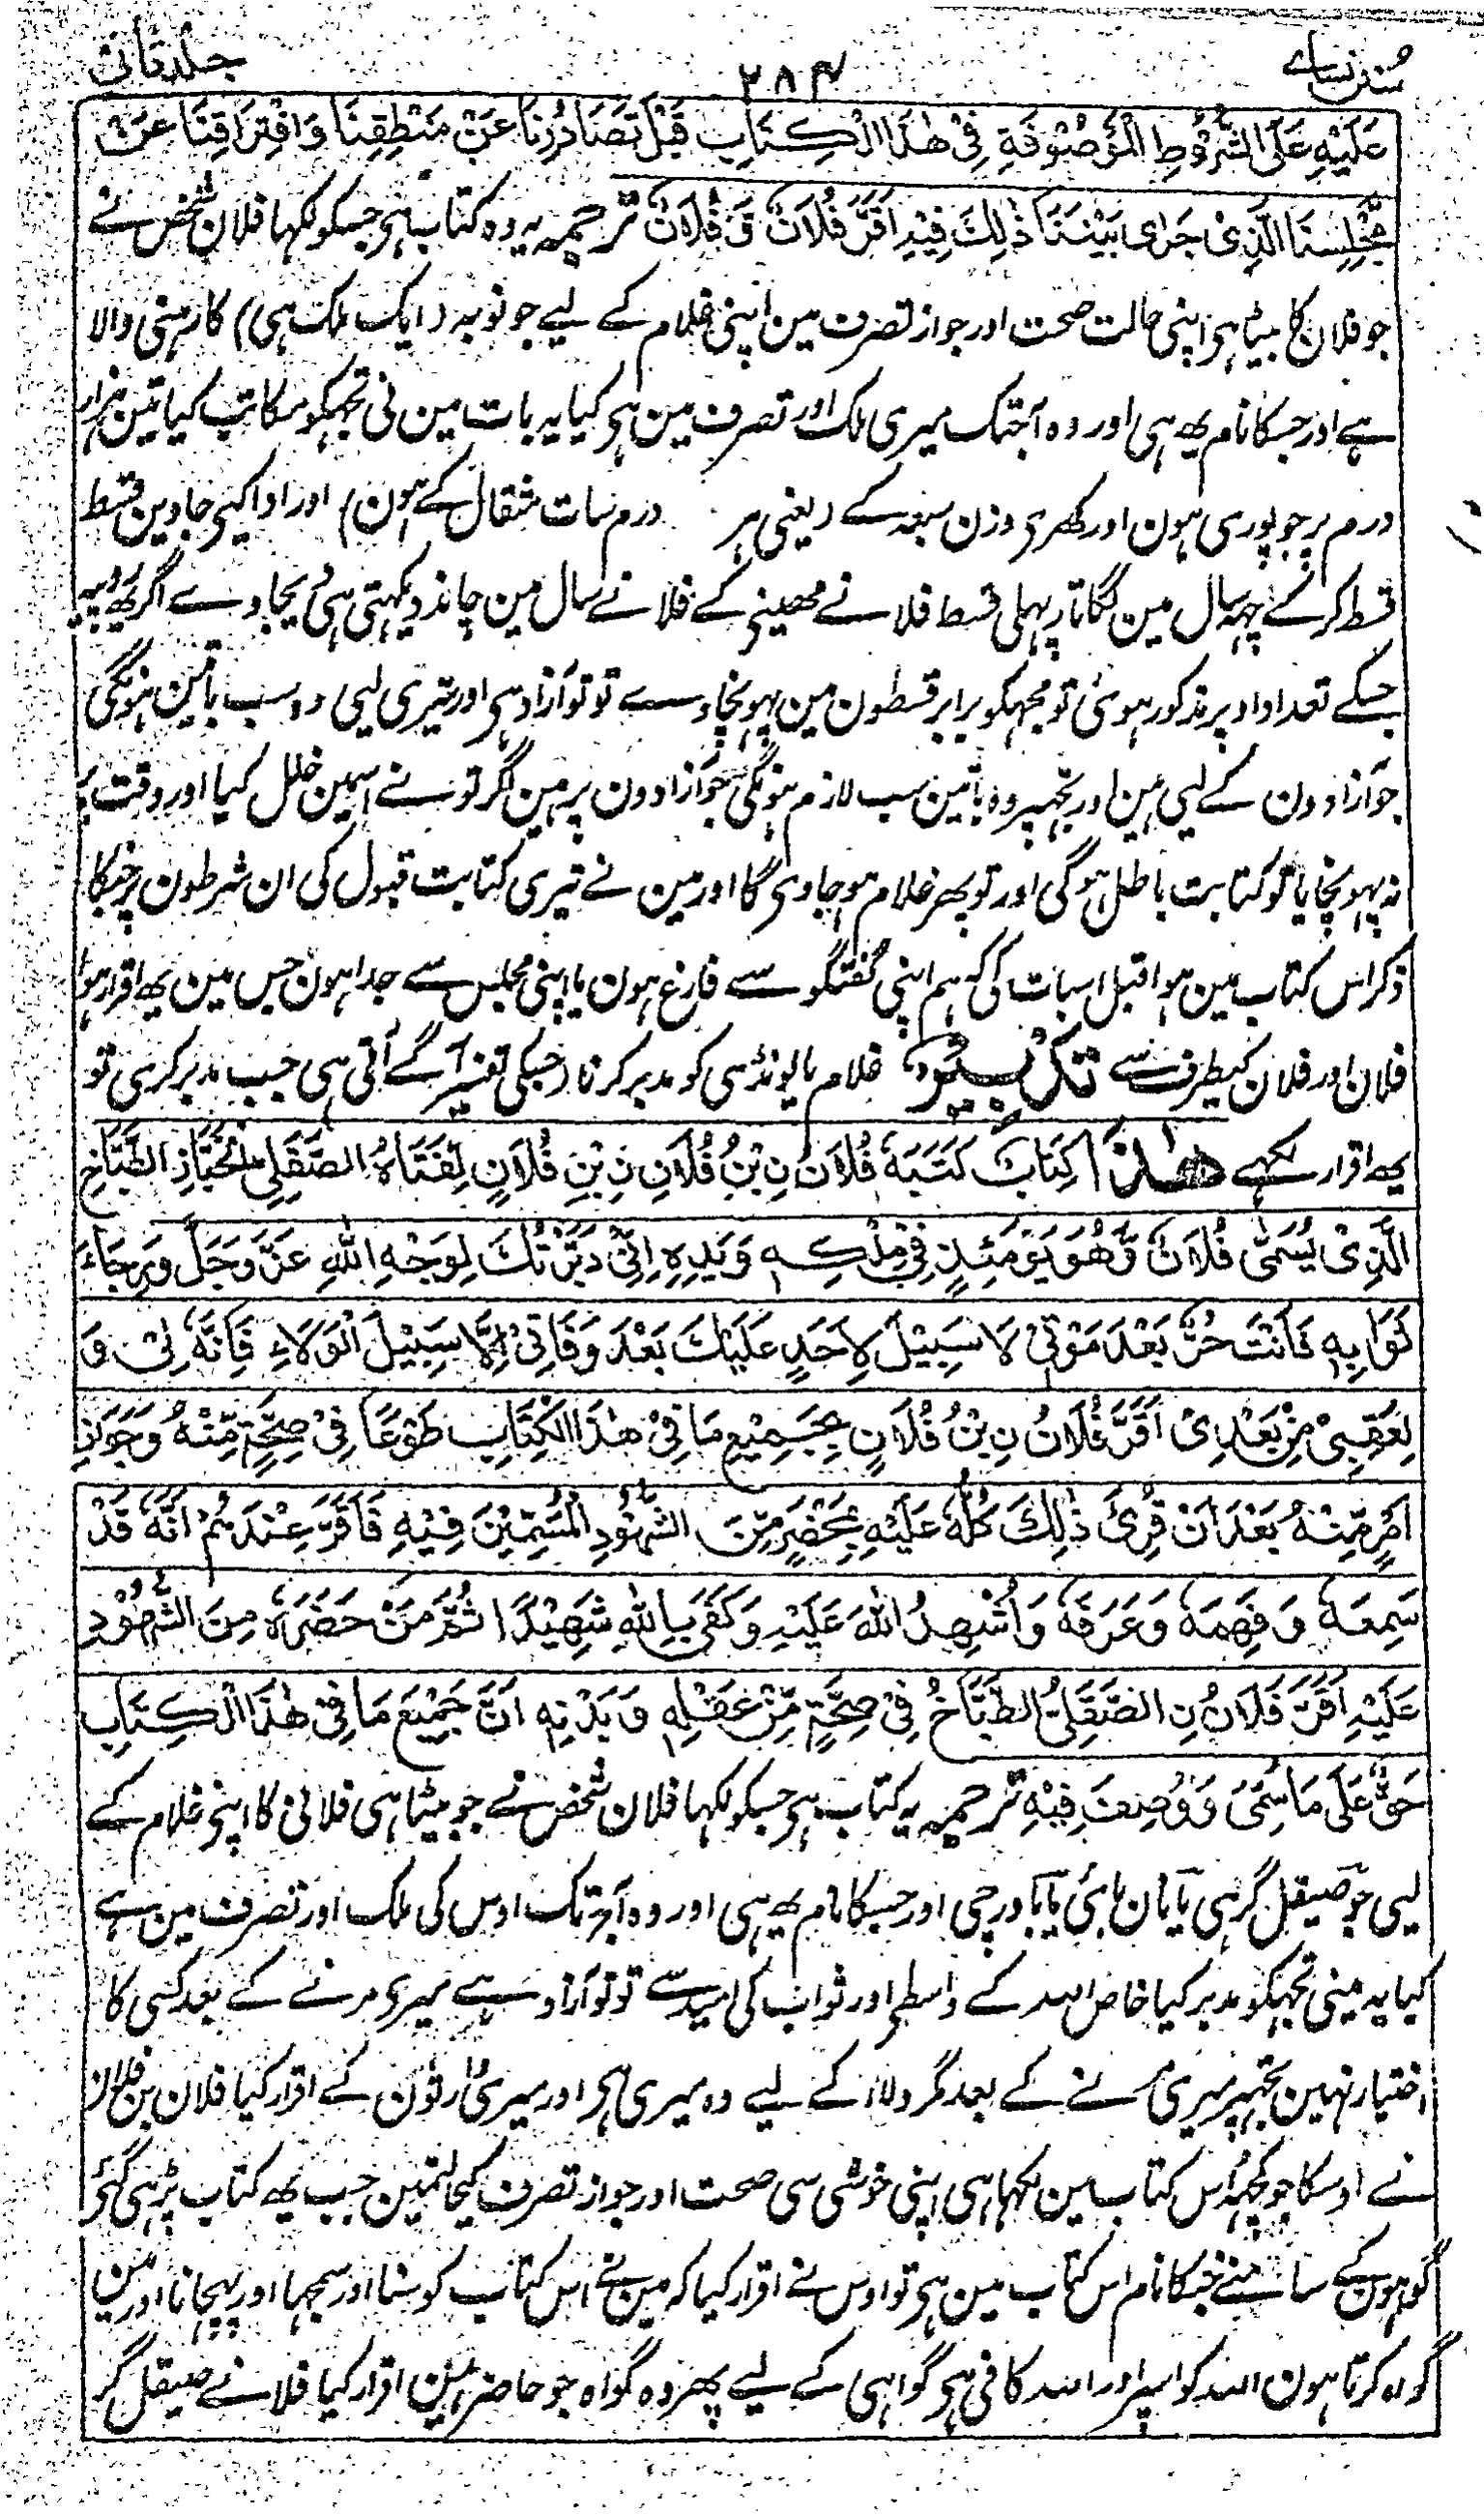 سنن نسائے ۲۸۴ جلد ثانی
عَلَيْهِ عَلَى الشُّرُوْطِ الْمَوْصُوْفَةِ فِيْ هٰذَا الْكِتَابِ قَبْلَ تَصَادُرِنَا عَنْ مَنْطِقِنَا وَافْتِرَاقِنَا عَنْ
مَجْلِسِنَا الَّذِيْ جَرٰى بَيْنَنَا ذٰلِكَ فِيْهِ اَقَرَّ فُلَانٌ وَّ فُلَانٌ ترجمہ یہ وہ کتاب ہی جسکو لکہا فلان شخص نے
جو فلان کا بیٹا ہی اپنی حالت صحت اور جواز تصرف مین اپنی غلام کے لیے جو نوبہ (ایک ملک ہی) کا رہنی والا
ہے اور جسکا نام یھ ہی اور وہ آجتک میری ملک اور تصرف مین ہی کیا یہ بات مین نی تجہکو مکاتب کیا تین ہزار
درم پر جو پوری ہون اور کھری وزن سبعہ کے (یعنی ہر درم سات مثقال کے ہون) اور ادا کیی جاوین قسط
قسط کر کے چہہ سال مین لگاتار پہلی قسط فلانے مھینی کے فلانے سال مین چاند دیکہتی ہی یجاوے اگر یھ روپیہ
جسکے تعداد اوپر مذکور ہوئی تو مجہکو برابر قسطون مین پہونچاوے تو تو آزاد ہی اور تیری لیی وہ سب باتین ہونگی
جو آزادون کے لیی ہین اور تجہپر وہ باتین سب لازم ہونگی جو آزادون پر ہین اگر تو نے اسمین خلل کیا اور وقت پر
نہ پہونچایا تو کتابت باطل ہوگی اور تو پھر غلام ہو جاوی گا اور مین نے تیری کتابت قبول کی ان شرطون پر جنکا
ذکر اس کتاب مین ہوا قبل اسبات کی کہ ہم اپنی گفتگو سے فارغ ہون یا اپنی مجلس سے جدا ہون جس مین یھ اقرار ہوا
فلان اور فلان کیطرف سے تدبیر غلام یا لونڈی کو مدبر کرنا (جسکی تفسیر آگے آتی ہی جب مدبر کری تو
یھ اقرار لکہے هٰذَا كِتَابٌ كَتَبَهٗ فُلَانُ نِ بْنُ فُلَانِ نِ بْنِ فُلَانٍ لِفَتَاهُ الصَّقَلِّيِ الْخَبَّازِ الطَّبَّاخِ
الَّذِيْ يُسَمّٰى فُلَانٌ وَّهُوَ يَوْمَئِذٍ فِيْ مِلْكِهٖ وَيَدِهٖ اِنِّيْ دَبَّرْتُكَ لِوَجْهِ اللّٰهِ عَزَّ وَجَلَّ وَرَجَاءِ
ثَوَابِهٖ فَاَنْتَ حُرٌّ بَعْدَ مَوْتِيْ لَا سَبِيْلَ لِاَحَدٍ عَلَيْكَ بَعْدَ وَفَاتِيْ اِلَّا سَبِيْلَ الْوَلَاءِ فَاِنَّهٗ لِيْ وَ
لِعَقِبِيْ مِنْ بَعْدِيْ اَقَرَّ فُلَانُ نِ بْنُ فُلَانٍ بِجَمِيْعِ مَا فِيْ هٰذَا الْكِتَابِ طَوْعًا فِيْ صِحَّةٍ مِّنْهُ وَجَوَازِ
اَمْرٍ مِّنْهُ بَعْدَ اَنْ قُرِئَ ذٰلِكَ كُلُّهٗ عَلَيْهِ بِمَحْضَرٍ مِّنَ الشُّهُوْدِ الْمُسَمَّيْنَ فِيْهِ فَاَقَرَّ عِنْدَهُمْ اَنَّهٗ قَدْ
سَمِعَهٗ وَفَهِمَهٗ وَعَرَفَهٗ وَاُشْهِدُ اللّٰهَ عَلَيْهِ وَكَفٰى بِاللّٰهِ شَهِيْدًا ثُمَّ مَنْ حَضَرَهٗ مِنَ الشُّهُوْدِ
عَلَيْهِ اَقَرَّ فُلَانُ نِ الصَّقَلِّيُّ الطَّبَّاخُ فِيْ صِحَّةٍ مِّنْ عَقْلِهٖ وَبَدَنِهٖ اَنَّ جَمِيْعَ مَا فِيْ هٰذَا الْكِتَابِ
حَقٌّ عَلٰى مَا سُمِّيَ وَوُصِفَ فِيْهِ ترجمہ یہ کتاب ہی جسکو لکہا فلان شخص نے جو بیٹا ہی فلانی کا اپنی غلام کے
لیی جو صیقل گر ہی یا نان بائی یا باورچی اور جسکا نام یھ ہی اور وہ آج تک اوس کی ملک اور تصرف مین ہے
کیا یہ مینی تجہکو مدبر کیا خاص اللہ کے واسطی اور ثواب کی امید سے تو تو آزاد ہے میری مرنے کے بعد کسی کا
اختیار نہین تجہپر میری مرنے کے بعد مگر ولاء کے لیے وہ میری ہی اور میری وارثون کے اقرار کیا فلان بن فلان
نے اوسکا جو کچہہ اس کتاب مین لکہا ہی اپنی خوشی سی صحت اور جواز تصرف کیحالتمین جب یھ کتاب پڑہی گئی
گواہون کے سامنے جنکا نام اس کتاب مین ہی تو اوس نے اقرار کیا کہ مین نے اس کتاب کو سنا اور سمجہا اور پہچانا اور مین
گواہ کرتا ہون اللہ کو اسپر اور اللہ کافی ہی گواہی کے لیے پھر وہ گواہ جو حاضر ہین اقرار کیا فلانے صیقل گر